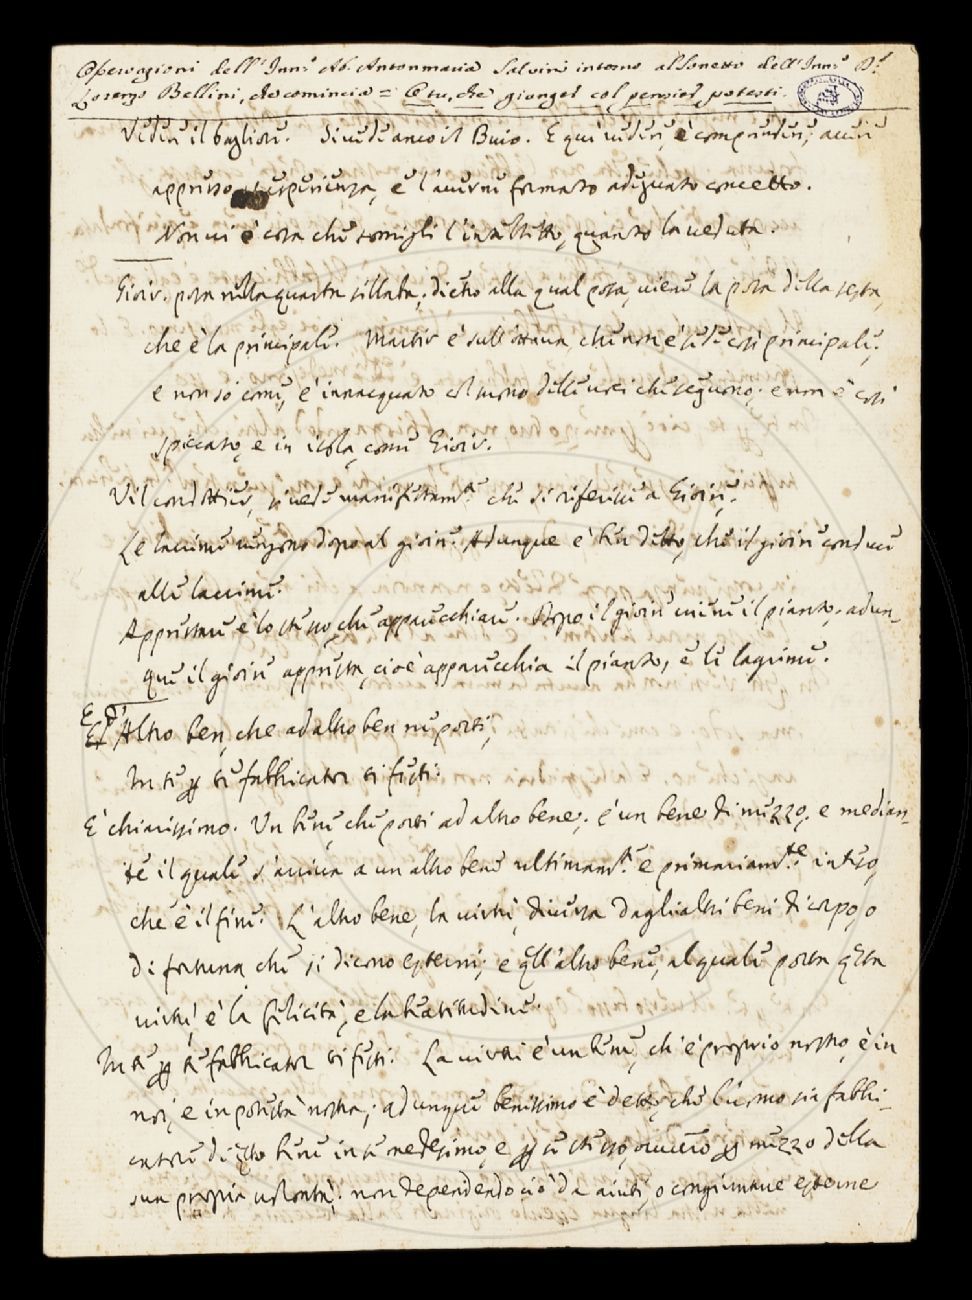 Operazioni dell'Inn.º Ab. Antonmaria Salvini intorno al Sonetto dell'Inn.º D.r
Lorenzo Bellini, che comincia = O tu, che giunger col pensier potesti.
Veder il bagliore. Si vede anco il Buio. E qui vedere, è comprendere, avere
appresso esperienza, e l'averne formato adeguato concetto.
Non vi è cosa che somigli l'intelletto, quanto la veduta.
Gioir. posa nella quarta sillaba; dietro alla qual posa, viene la posa della sesta,
che è la principale. Martir è sull'ottava, che non è sede così principale;
e non so come, è innacquato col suono delle voci che seguono; e non è così
spiccato, e in isola, come Gioir.
Vi condottier, si vede manifestam.te che si riferisce a Gioire.
Le lacrime vengono dopo al gioire. Adunque è ben detto, che il gioire conduce
alle lacrime.
Apprestare è lo stesso, che apparecchiare. Dopo il gioire viene il pianto; adun-
que il gioire appresta, cioè apparecchia il pianto, e le lagrime.
E d'
Altro ben, che ad altro ben ne porti,
In te per te fabbricator ti festi.
È chiarissimo. Un bene che porti ad altro bene; è un bene di mezzo, e median-
te il quale s'arriva a un altro bene ultimam.te e primariam.te inteso,
che è il fine. L'altro bene, la virtù, diversa dagli altri beni di corpo, o
di fortuna, che si dicono esterni; e q̃ll'altro bene, al quale porta q̃sta
virtù, è la felicità, e la beatitudine.
In te per te fabbricator ti festi. La virtù è un bene, ch'è proprio nostro, è in
noi, e in potestà nostra; adunque benissimo è detto, che l'uomo sia fabbri-
catore di q̃sto bene in se medesimo, e per se stesso, ovvero per mezzo della
sua propria volontà: non dependendo ciò da aiuti, o congiunture esterne